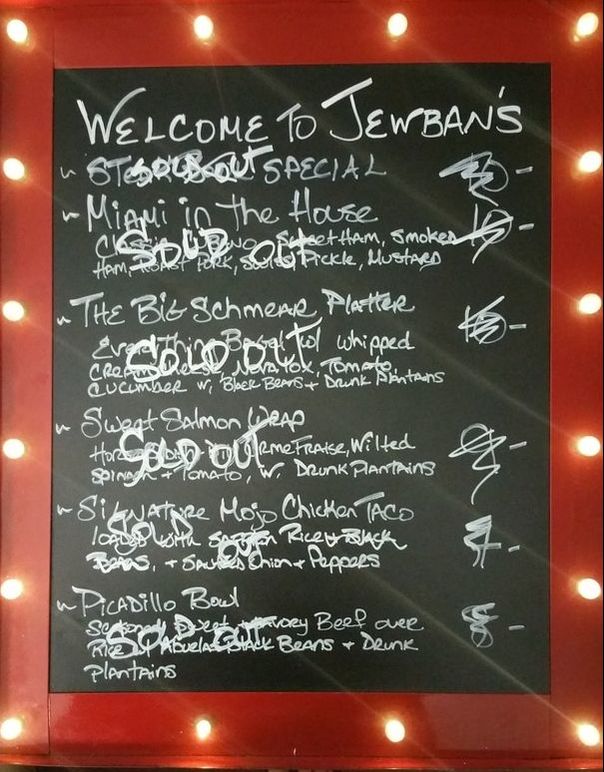 WELCOME TO JEWBAN'S
~ SOLD OUT SPECIAL
~ Miami in The House
Classic Cubano Sweet Ham, Smoked
Ham, Roast Pork, Swiss, Pickle, Mustard
SOLD OUT
~ THE BIG SCHMEAR Platter
Everything Bagel w/ whipped
Cream Cheese, Nova Lox, Tomato,
CUCUMBER w, Black Beans + Drunk Plantains
SOLD OUT
~ Sweet Salmon WRAP
Creme Fraise, Wilted
Spinach + Tomato, w, Drunk Plantains
SOLD OUT
~ SIGNATURE Mojo Chicken TACO
loaded with Saffron Rice + Black
Beans, + Sauteed Onion + Peppers
SOLD OUT
~ PICADILLO Bowl
Savory Beef over
Rice w/ Abuelas Black Beans + Drunk
Plantains
SOLD OUT